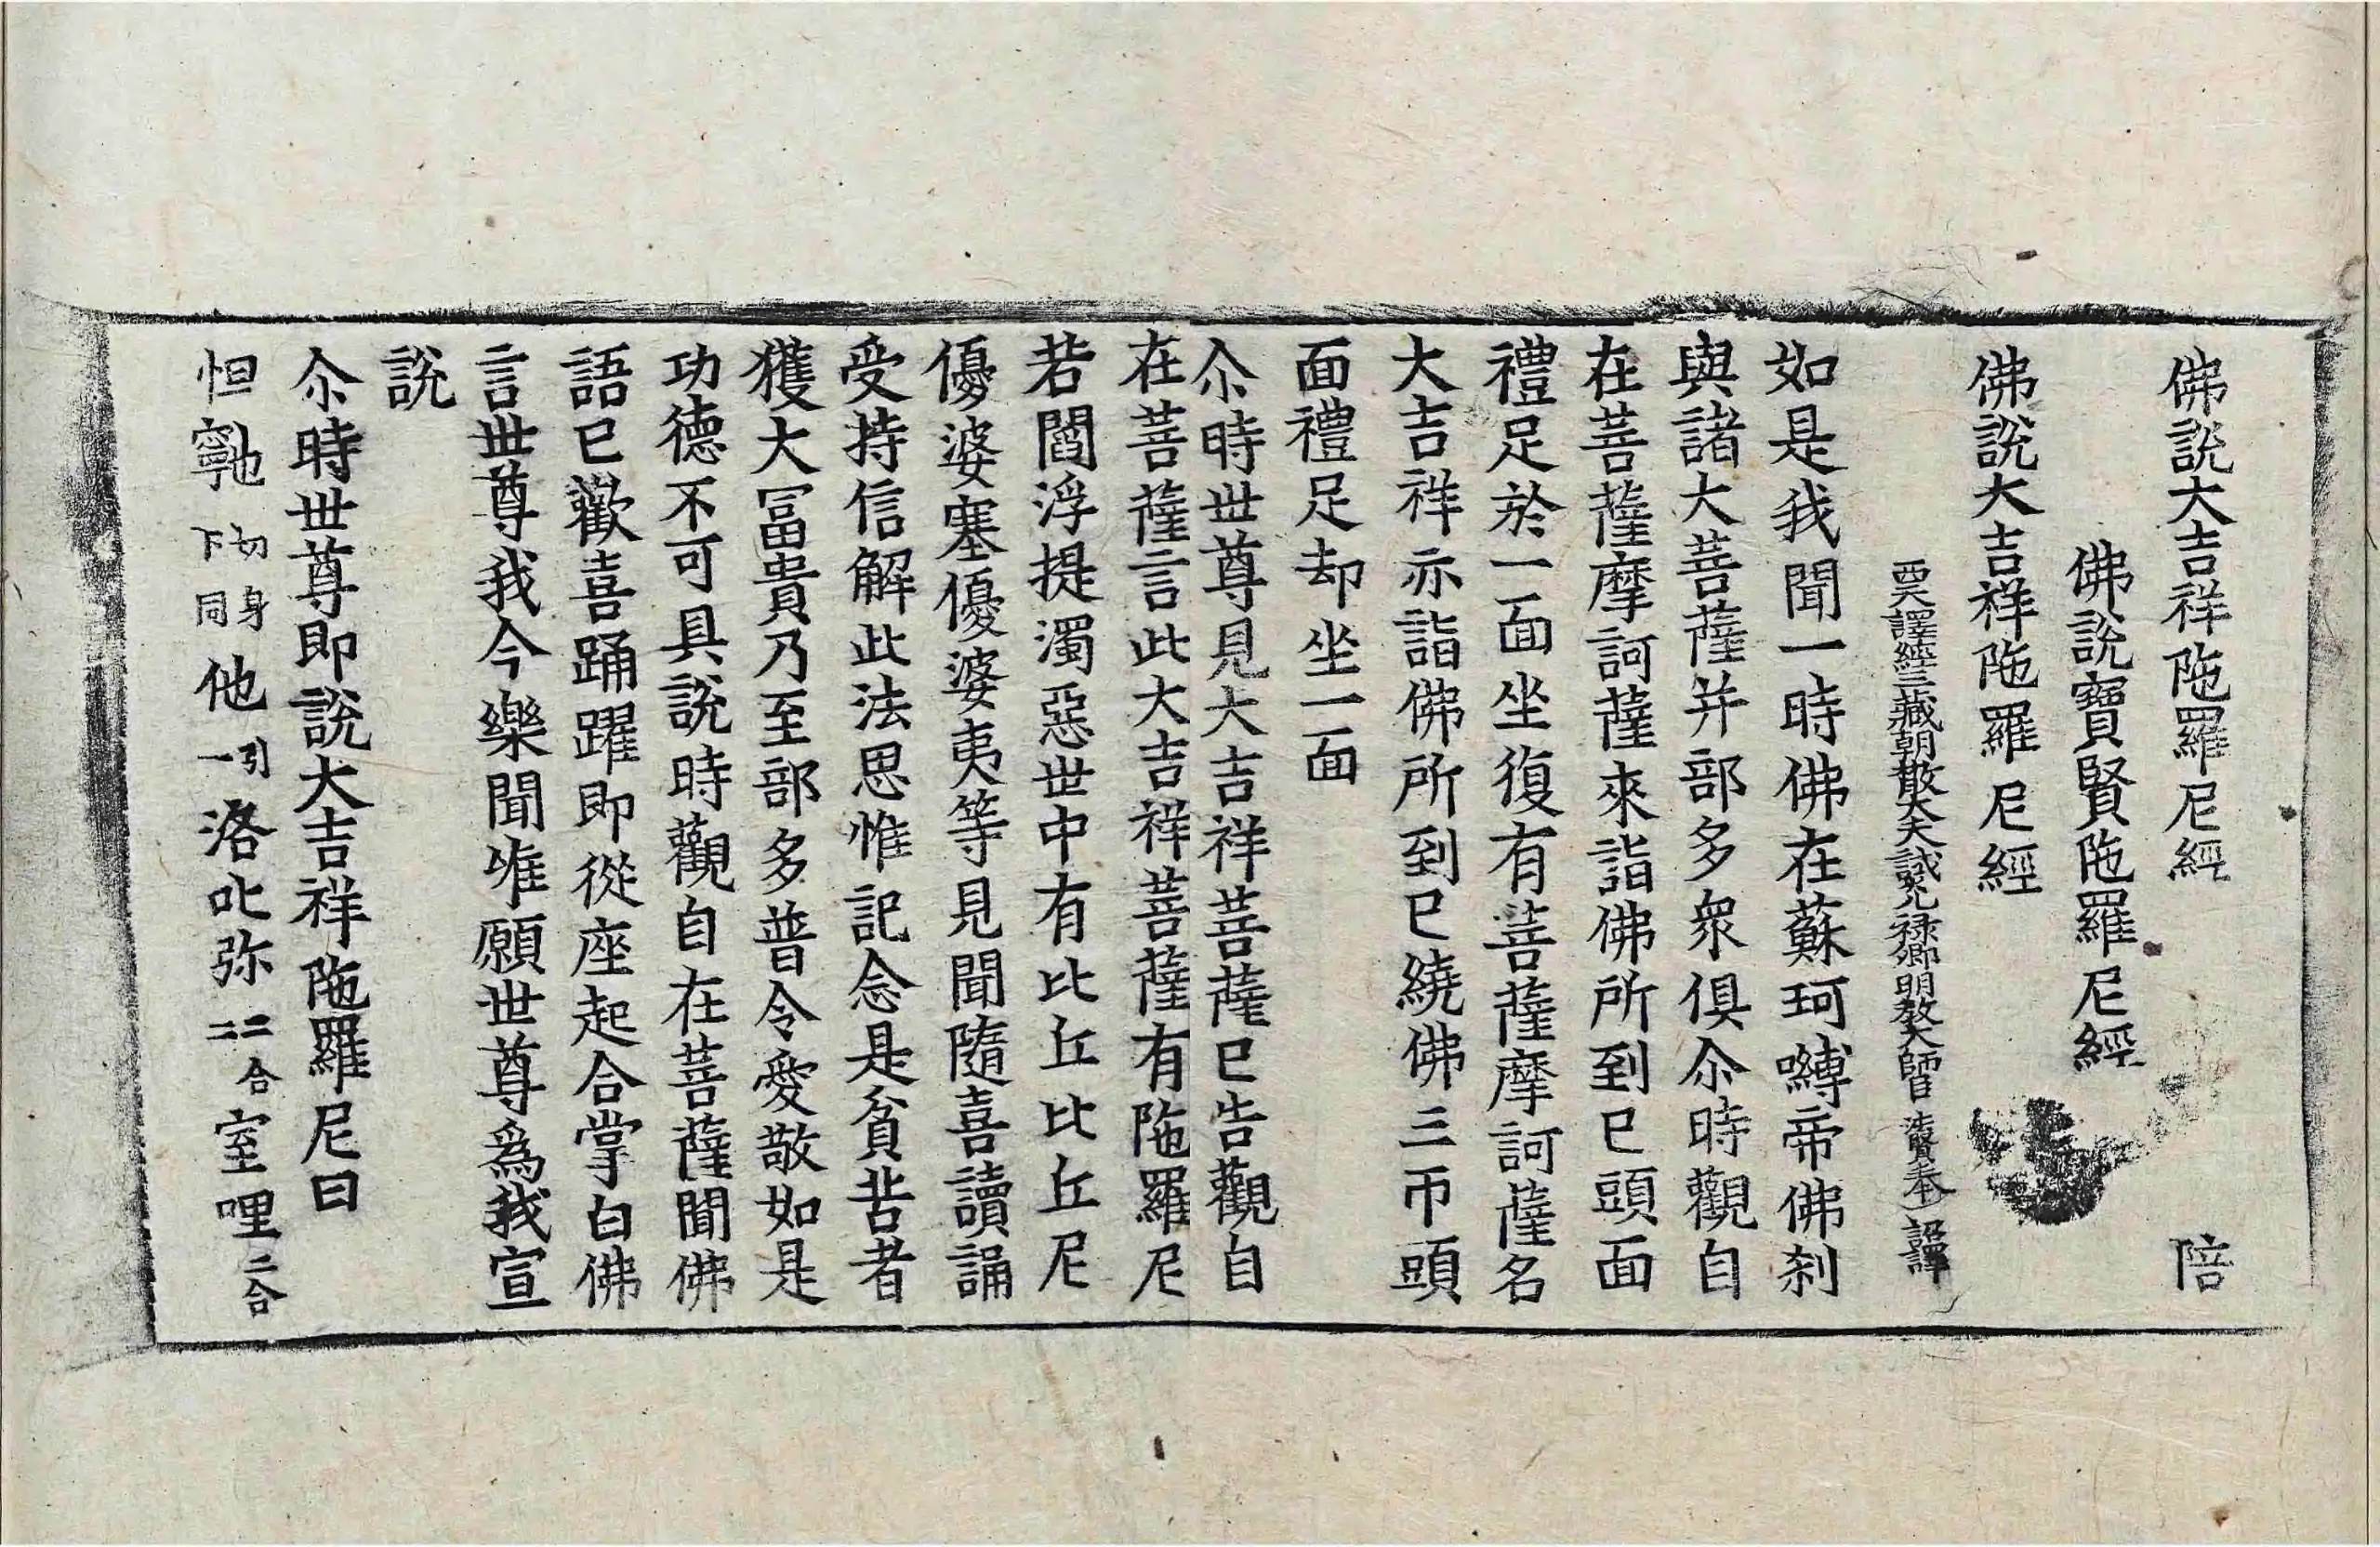 佛說大吉祥陁羅尼經 陪
佛說寶賢陁羅尼經
佛說大吉祥陁羅尼經
西天譯經三藏朝散大夫試光禄卿明教大師臣法賢奉詔譯
如是我聞一時佛在蘇珂嚩帝佛刹
與諸大菩薩并部多衆俱尒時觀自
在菩薩摩訶薩來詣佛所到已頭面
禮足於一面坐復有菩薩摩訶薩名
大吉祥亦詣佛所到已繞佛三帀頭
面禮足却坐一面
尒時世尊見大吉祥菩薩已告觀自
在菩薩言此大吉祥菩薩有陁羅尼
若閻浮提濁惡世中有比丘比丘尼
優婆塞優婆夷等見聞隨喜讀誦
受持信解此法思惟記念是貧苦者
獲大冨貴乃至部多普令愛敬如是
功德不可具說時觀自在菩薩聞佛
語已歡喜踊躍即從座起合掌白佛
言世尊我今樂聞唯願世尊爲我宣
說
尒時世尊即說大吉祥陁羅尼曰
怛𡫸也切身下同他引一洛叱弥二合二室哩二合